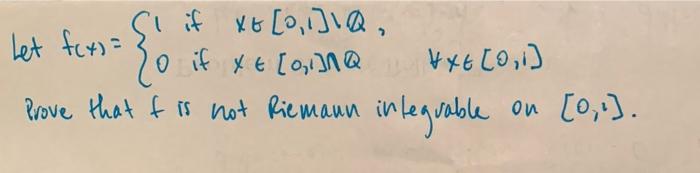 Let f(x) = { 1 if x ∈ [0,1] \ ℚ,
0 if x ∈ [0,1] ∩ ℚ ∀ x ∈ [0,1]
Prove that f is not Riemann integrable on [0,1].